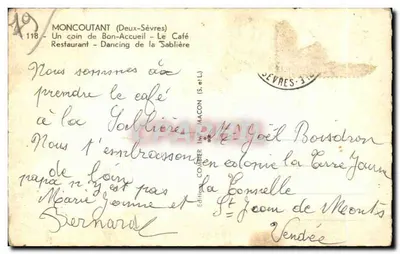 79
MONCOUTANT (Deux-Sèvres)
118 - Un coin de Bon-Accueil - Le Café
Restaurant - Dancing de la Sablière
Nous sommes
prendre le café
à la Sablière
Nous t'embrassons
de loin
papa n'y est pas
Marie Jeanne et
Bernard
MACON (S.-et-L.)
SÈVRES
Joël Boisdron
en colonie la Terre Jaune
la Tonnelle
St Jean de Monts
Vendée